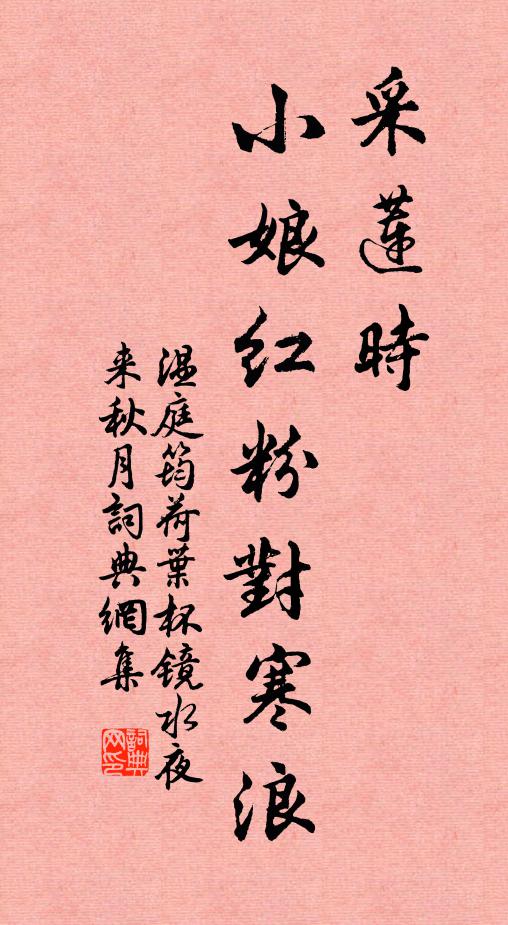 采蓮時
小娘红粉對寒浪
温庭筠荷葉杯镜水夜
来秋月詞典網集
詞典网印